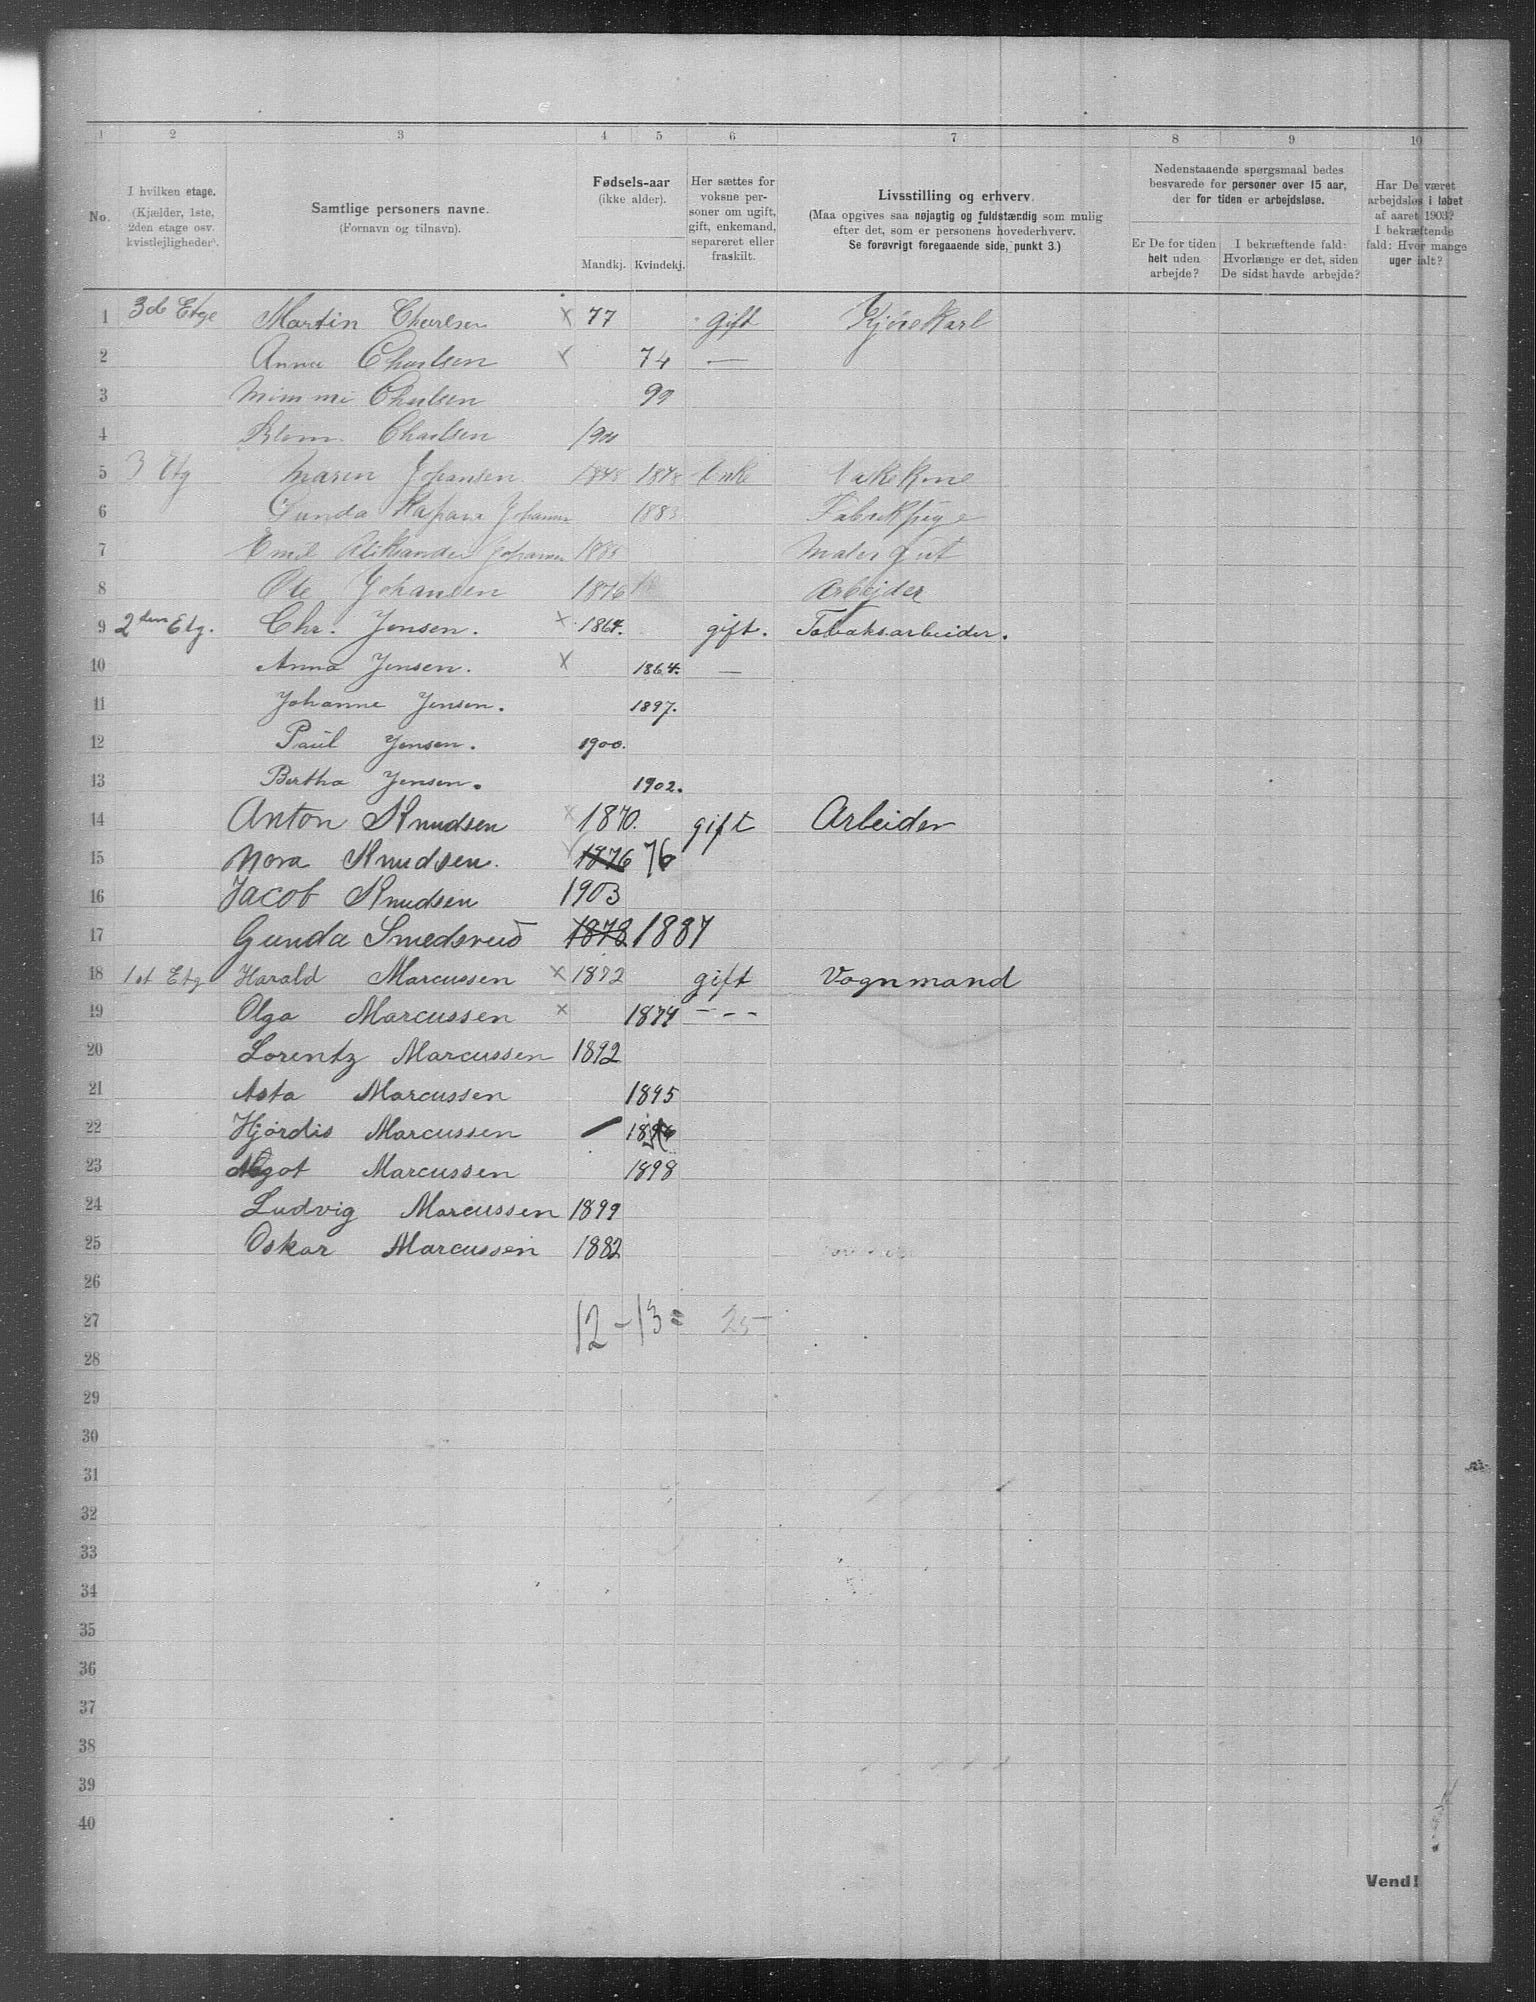 1 2 3 4 5 6 7 8 9 10
No.
I hvilken etage.
(Kjælder, 1ste,
2den etage osv.
kvistlejligheder).
Samtlige personers navne.
(Fornavn og tilnavn).
Fødsels-aar
(ikke alder).
Mandkj. Kvindekj.
Her sættes for
voksne per-
soner om ugift,
gift, enkemand,
separeret eller
fraskilt.
Livsstilling og erhverv.
(Maa opgives saa nøjagtig og fuldstændig som mulig
efter det, som er personens hovederhverv.
Se forøvrigt foregaaende side, punkt 3.)
Nedenstaaende spørgsmaal bedes
besvarede for personer over 15 aar,
der for tiden er arbejdsløse.
Er De for tiden
helt uden
arbejde?
I bekræftende fald:
Hvorlænge er det, siden
De sidst havde arbejde?
Har De været
arbejdsløs i løbet
af aaret 1903?
I bekræftende
fald: Hvor mange
uger ialt?
1 3de Etge Martin Charlsen x 77 gift Kjørekarl
2 Anna Charlsen 74 —
3 Mimmi Charlsen 99
4 Charlsen
5 3 Etg Maren Johansen 1848 1848 Enke
6 Gunda Johansen 1883 Fabrikpige
7 Emil Aleksander Johansen 1885 Malergut
8 Ole Johansen 1876 Arbejder
9 2den Etg. Chr. Jensen. x 1864. gift. Tobaksarbeider.
10 Anna Jensen. x 1864. —
11 Johanne Jensen. 1897.
12 Paul Jensen. 1900.
13 Bertha Jensen. 1902.
14 Anton Knudsen x 1870. gift Arbeider
15 Nora Knudsen. 1876 76
16 Jacob Knudsen 1903
17 Gunda Smedsrud 1878 1887
18 1st Etg Harald Marcussen x 1872 gift Vognmand
19 Olga Marcussen x 1874 - - -
20 Lorentz Marcussen 1892
21 Asta Marcussen 1895
22 Hjørdis Marcussen
23 Marcussen 1898
24 Ludvig Marcussen 1899
25 Oskar Marcussen 1882
26
27 12 - 13 = 25
28
29
30
31
32
33
34
35
36
37
38
39
40
Vend!